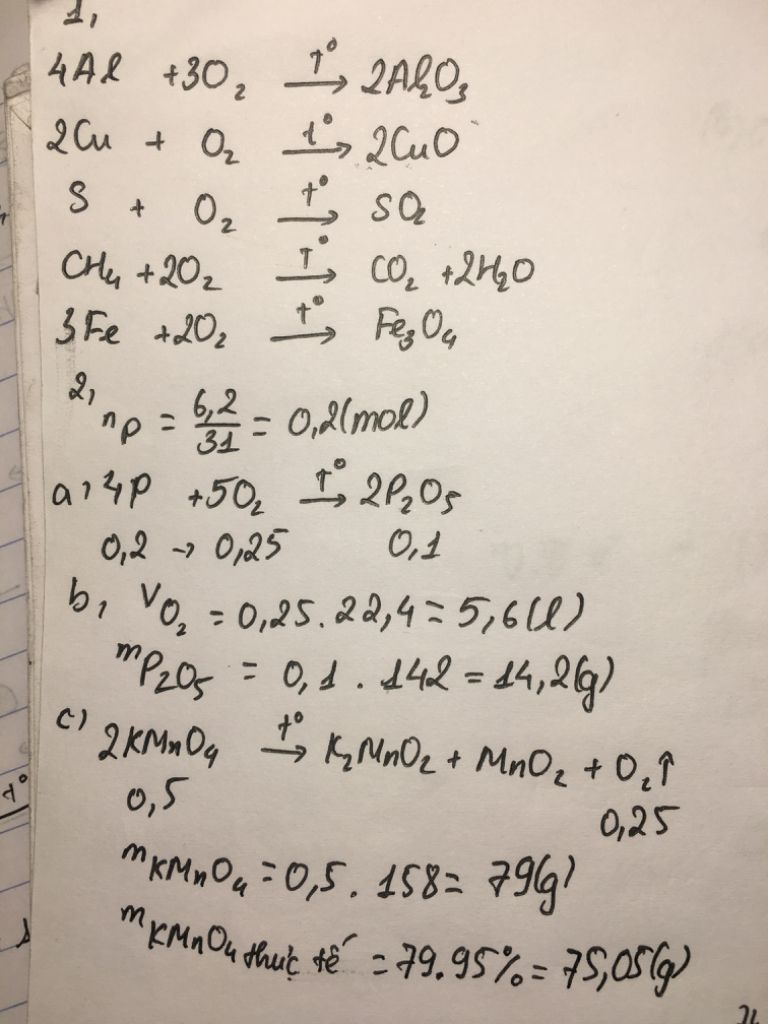 1,
4Al +3O₂ →(t°) 2Al₂O₃
2Cu + O₂ →(t°) 2CuO
S + O₂ →(t°) SO₂
CH₄ +2O₂ →(t°) CO₂ +2H₂O
3Fe +2O₂ →(t°) Fe₃O₄
2, nP = 6,2/31 = 0,2(mol)
a, 4P +5O₂ →(t°) 2P₂O₅
0,2 → 0,25 0,1
b, VO₂ = 0,25.22,4 = 5,6(l)
mP₂O₅ = 0,1 . 142 = 14,2(g)
c) 2KMnO₄ →(t°) K₂MnO₂ + MnO₂ + O₂↑
0,5 0,25
mKMnO₄ = 0,5 . 158 = 79(g)
mKMnO₄ thực tế = 79.95% = 75,05(g)
t°